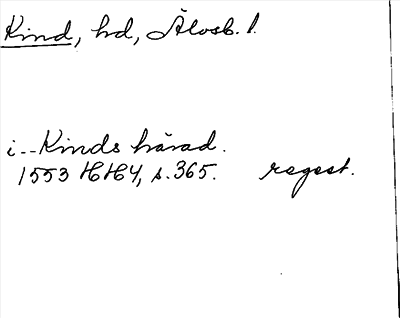 Kind, hd, Älvsb. l.
i -- Kinds härad.
1553 HH4, s. 365. regest.